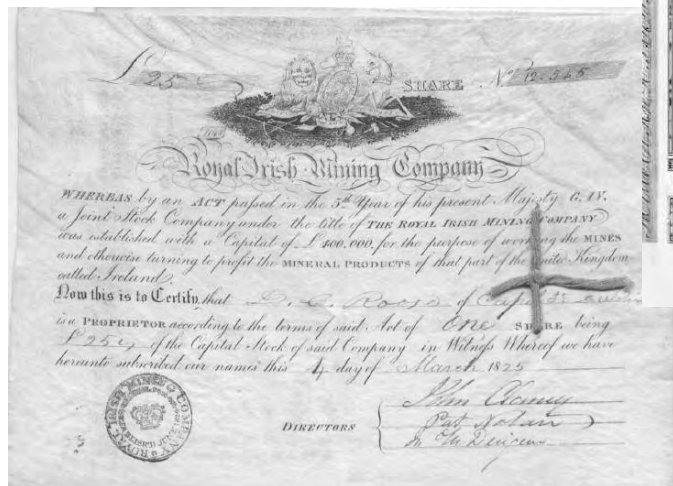 £ 25 SHARE No. 12.545
THE
Royal Irish Mining Company
WHEREAS by an ACT passed in the 5th Year of his present Majesty G. IV.
a Joint Stock Company under the title of THE ROYAL IRISH MINING COMPANY
was established with a Capital of £400,000, for the purpose of working the MINES
and otherwise turning to profit the MINERAL PRODUCTS of that part of the United Kingdom
called Ireland.
Now this is to Certify, that of Capel St
is a PROPRIETOR according to the terms of said Act of One SHARE being
£25 of the Capital Stock of said Company in Witness Whereof we have
hereunto subscribed our names this 4 day of March 1825
DIRECTORS
Pat Nolan
ROYAL IRISH MINING COMPANY